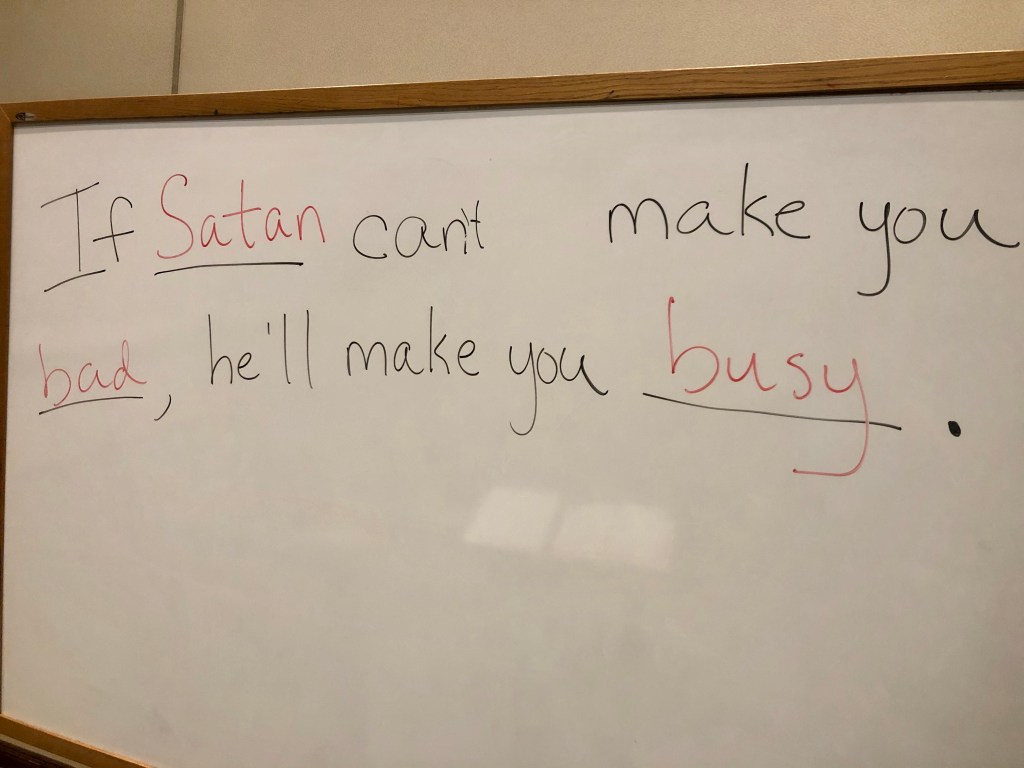 If Satan can't make you
bad, he'll make you busy.